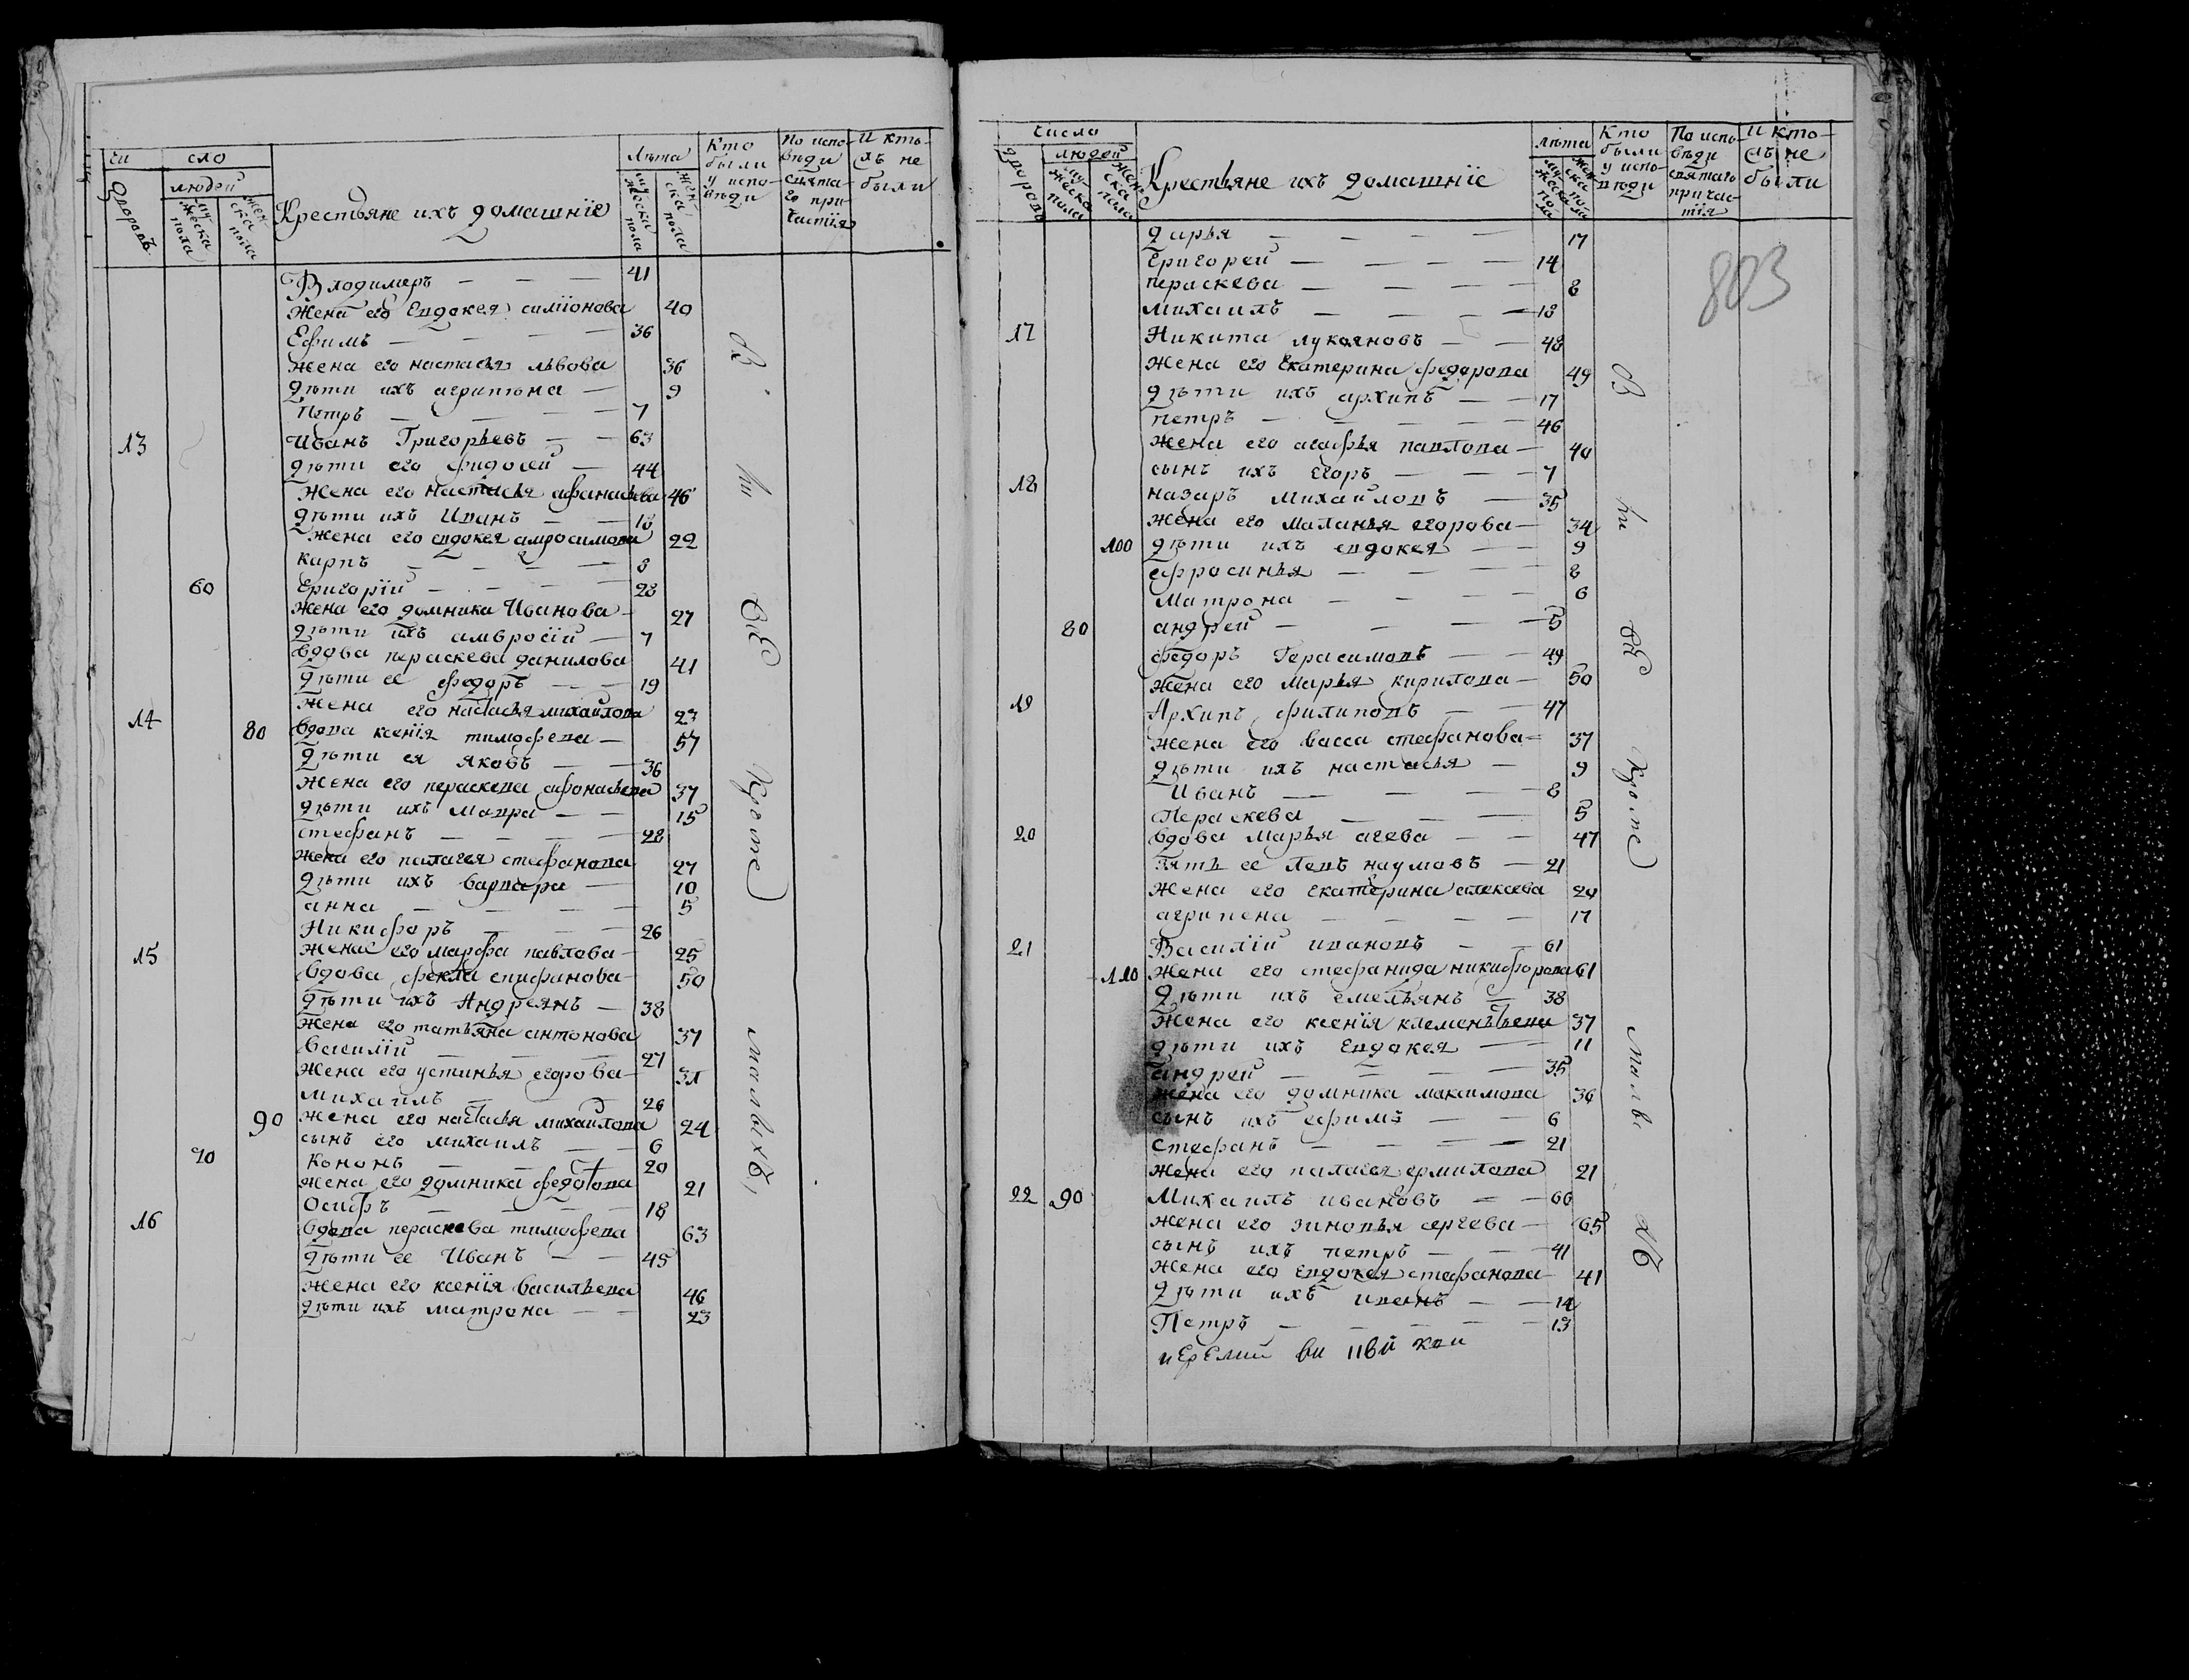 Чи сло
Дворовъ
людей
мужеска пола
женска пола
Крестьяне ихъ домашнїе
Лѣта
мужеска пола
женска пола
Кто были у исповѣди
По исповѣди святаго причастїя
И кто-хъ не были
Владимеръ — — — 41
Жена его Евдокея симїонова 40
Ефимъ — — — 36
Жена его настасья львова 36
Дѣти ихъ агрипъна — 9
Петръ — — — 7
13 Иванъ Григорьевъ — — 63
дѣти его фидосей — 44
Жена его настасья афанасьева 46
дѣти ихъ Иванъ — — 18
Жена его евдокея амросимова 22
карпъ — — — 8
60 Григорїй — — — 28
Жена его домника Иванова — 27
дѣти ихъ амвросїй — 7
вдова пераскева данилова 41
дѣти ее федоръ — — 19
Жена его настасья михайлова 23
14 80 вдова ксенїя тимофева — 57
Дѣти ея яковъ — — 36
Жена его пераскева афонасьева 37
дѣти ихъ мавра — — 15
стефанъ — — — 28
жена его палагея стефанова 27
Дѣти ихъ варвара — 10
анна — — — 5
Никифоръ — — — 26
Жена его марфа павлова — 25
15 вдова фекла епифанова — 50
Дѣти ихъ Андреянъ — 38
Жена его татьяна антонова 37
василїй — — — 27
Жена его устинья егорова — 31
михаилъ — — — 26
90 Жена его настасья михайлова 24
сынъ его михаилъ — — 6
70 кононъ — — — 20
Жена его домника федотова 21
Осифъ — — — 18
16 вдова пераскева тимофева 63
Дѣти ее Иванъ — — 45
Жена его ксенїя васильева 46
дѣти ихъ матрона — — 23
малыхъ,
Число
Дворовъ
людей
мужеска пола
женска пола
Крестьяне ихъ домашнїе
лѣта
мужеска пола
женска пола
Кто были у исповѣди
По исповѣди святаго причастїя
И кто-съ не были
803
дарья — — — — 17
Григорей — — — — 14
пераскева — — — — 8
михаилъ — — — — 18
17 Никита лукяновъ — — 48
Жена его Екатерина федорова 49
дѣти ихъ архипъ — — 17
петръ — — — — 46
жена его агафья павлова — 40
сынъ ихъ егоръ — — — 7
18 назаръ михайловъ — 35
жена его маланья егорова — 34
100 дѣти ихъ евдокея — — 9
ефросинья — — — 8
Матрона — — — — 6
80 андрей — — — 5
федоръ Герасимовъ — — 49
Жена его марья кирилова — 50
19 Архипъ филиповъ — — 47
жена его васса стефанова — 37
дѣти ихъ настасья — 9
Иванъ — — — 8
Пераскева — — — 5
20 вдова марья агева — — 47
зять ее левъ наумовъ — 21
Жена его екатерина алексева 20
агрипена — — — — 17
21 Василїй ивановъ — — 61
110 Жена его стефанида никифорова 61
Дѣти ихъ емельянъ — 38
Жена его ксенїя клементьева 37
дѣти ихъ Евдокея — — 11
андрей — — — — 35
жена его домника максимова 36
сынъ ихъ ефимъ — — 6
стефанъ — — — — 21
жена его палагея ермилова 21
22 90 Михаилъ ивановъ — — 66
жена его зиновья сергева — 65
сынъ ихъ петръ — — — 41
жена его Евдокея стефанова 41
Дѣти ихъ иванъ — — 14
Петръ — — — — 13